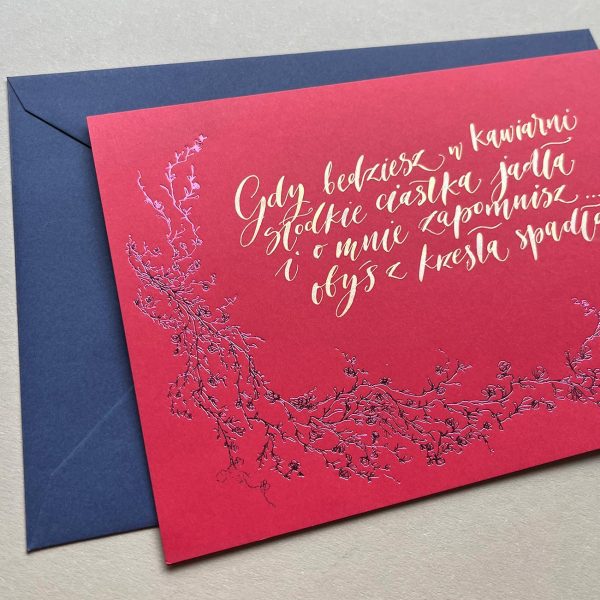 Gdy będziesz w kawiarni
słodkie ciastka jadła
i o mnie zapomnisz...
obyś z krzesła spadła